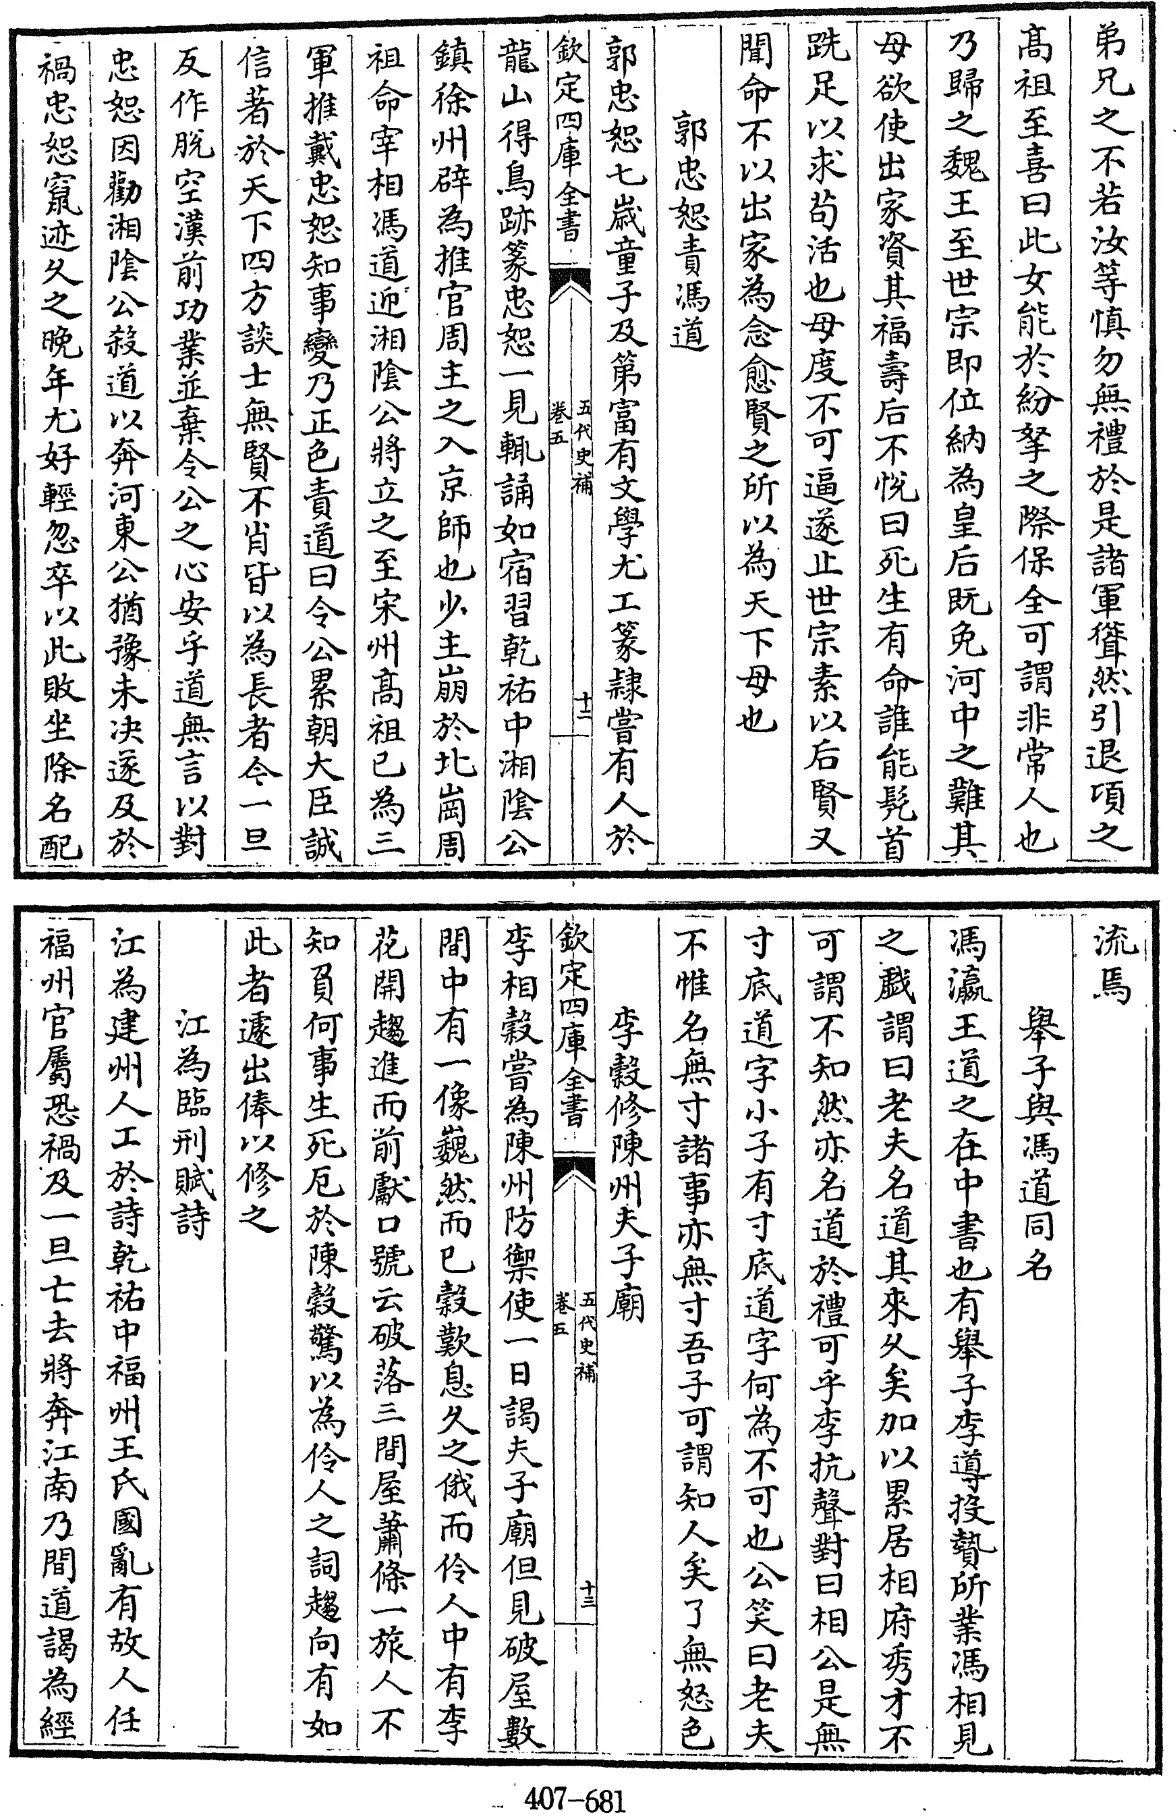 弟兄之不若汝等慎勿無禮於是諸軍聳然引退項之
髙祖至喜曰此女能於紛拏之際保全可謂非常人也
乃歸之魏王至世宗即位納為皇后既免河中之難其
母欲使出家資其福壽后不悅曰死生有命誰能髠首
跣足以求茍活也母度不可逼遂止世宗素以后賢又
聞命不以出家為念愈賢之所以為天下母也
郭忠恕責馮道
郭忠恕七嵗童子及第富有文學尤工篆隷嘗有人於
欽定四庫全書
五代史補
卷五
十二
龍山得鳥跡篆忠恕一見輒誦如宿習乾祐中湘陰公
鎮徐州辟為推官周主之入京師也少主崩於北崗周
祖命宰相馮道迎湘陰公將立之至宋州髙祖已為三
軍推戴忠恕知事變乃正色責道曰令公累朝大臣誠
信著於天下四方談士無賢不肖皆以為長者今一旦
反作脫空漢前功業並棄令公之心安乎道無言以對
忠恕因勸湘陰公殺道以奔河東公猶豫未决遂及於
禍忠恕竄迹久之晚年尤好輕忽卒以此敗坐除名配
流焉
舉子與馮道同名
馮瀛王道之在中書也有舉子李導投贄所業馮相見
之戲謂曰老夫名道其來久矣加以累居相府秀才不
可謂不知然亦名道於禮可乎李抗聲對曰相公是無
寸底道字小子有寸底道字何為不可也公笑曰老夫
不惟名無寸諸事亦無寸吾子可謂知人矣了無怒色
李穀修陳州夫子廟
欽定四庫全書
五代史補
卷五
十三
李相穀嘗為陳州防禦使一日謁夫子廟但見破屋數
間中有一像巍然而已穀歎息久之俄而伶人中有李
花開趨進而前獻口號云破落三間屋蕭條一旅人不
知負何事生死厄於陳穀驚以為伶人之詞趨向有如
此者遽出俸以修之
江為臨刑賦詩
江為建州人工於詩乾祐中福州王氏國亂有故人任
福州官屬恐禍及一旦亡去將奔江南乃間道謁為經
407-681